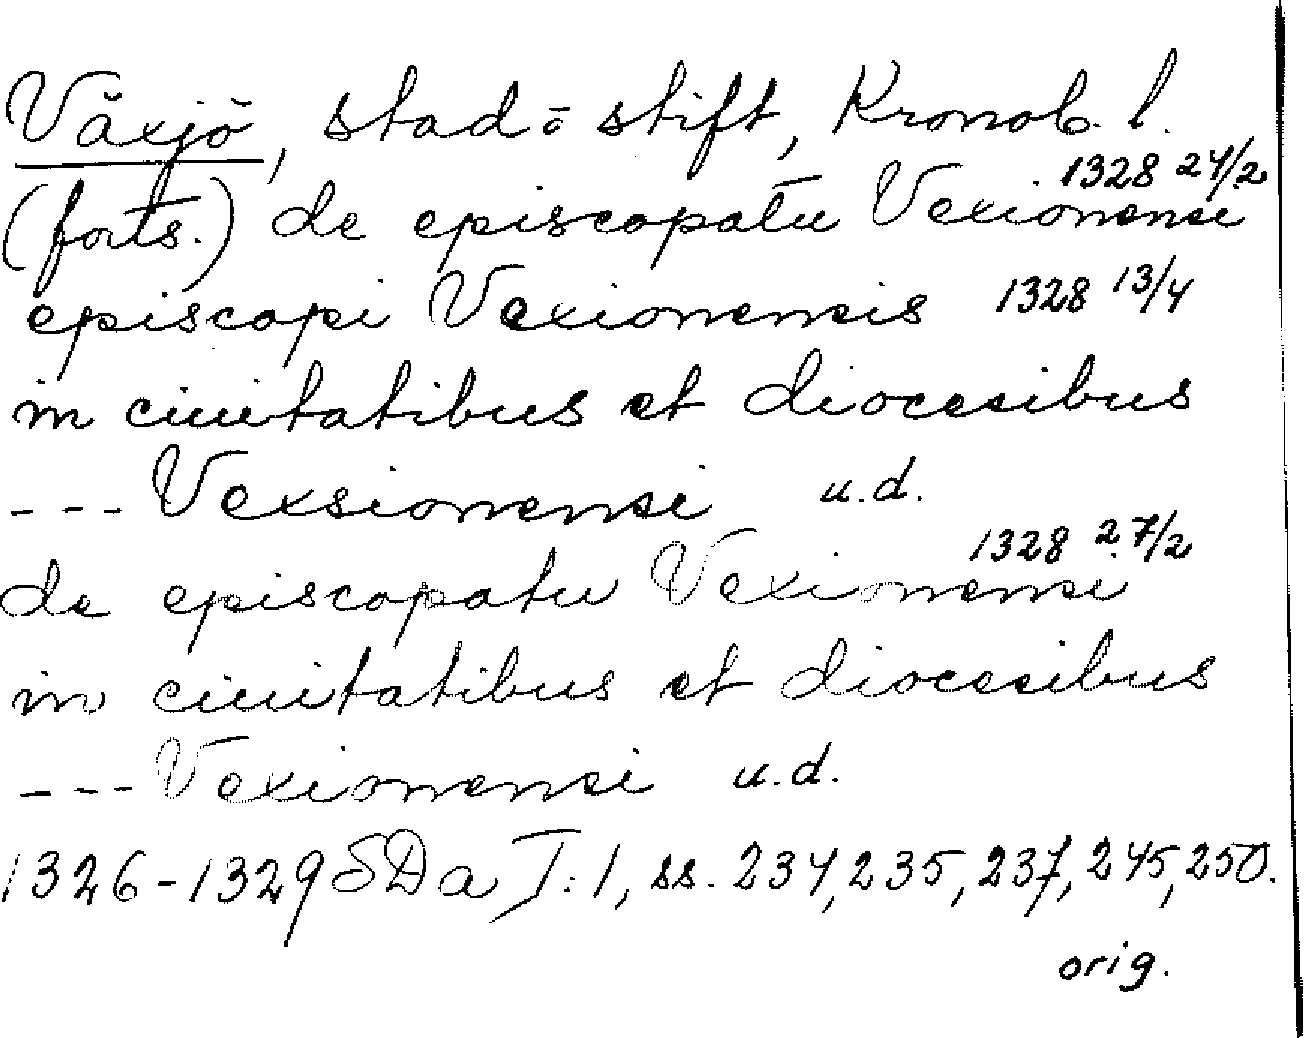 Växjö, stad o stift, Kronob. l.
(forts.) de episcopatu Vexionensi 1328 24/2
episcopi Vexionensis 1328 13/4
in ciuitatibus et diocesibus
--- Vexsionensi u.d.
de episcopatu Vexionensi 1328 27/2
in ciuitatibus et diocesibus
--- Vexionensi u.d.
1326-1329 SDa I:1, ss. 234, 235, 237, 245, 250.
orig.